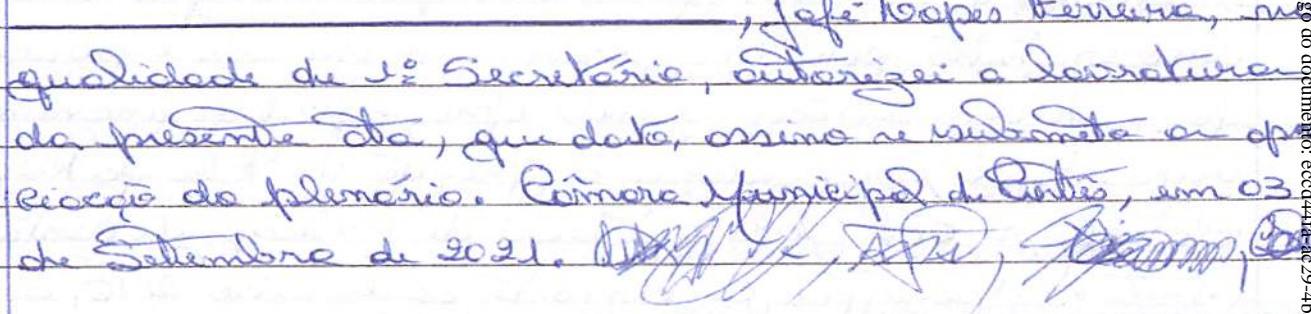 , Jafé Lopes Ferreira, na
qualidade de 1º Secretário, autorizei a lavratura
da presente ata, que dato, assino e submeto a apre
ciação do plenário. Câmara Municipal de Cortês, em 03
de Setembro de 2021.
go do documento: